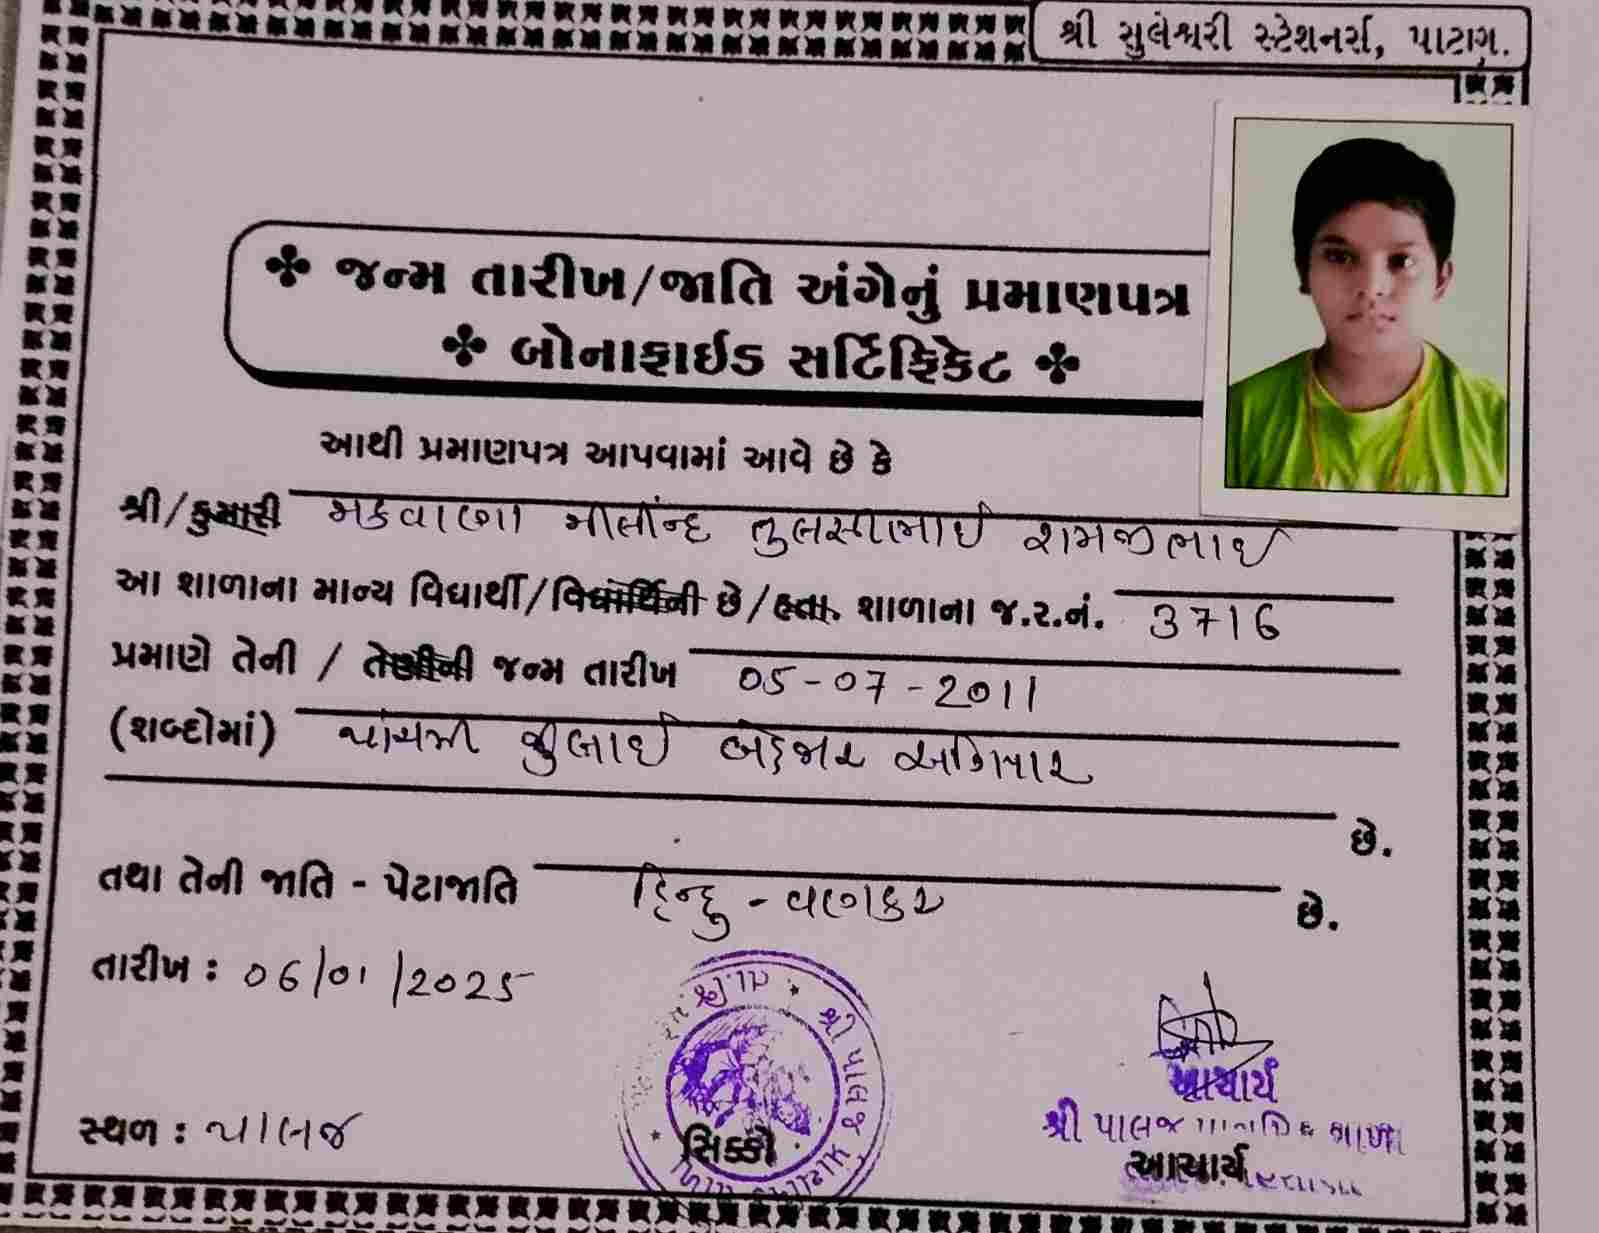 શ્રી સુલેશ્વરી સ્ટેશનર્સ, પાટણ.
જન્મ તારીખ/જાતિ અંગેનું પ્રમાણપત્ર
બોનાફાઈડ સર્ટિફિકેટ
આથી પ્રમાણપત્ર આપવામાં આવે છે કે
શ્રી/કુમારી મકવાણા મીલીન્દ તુલસીભાઈ રામજીભાઈ
આ શાળાના માન્ય વિદ્યાર્થી/વિદ્યાર્થિની છે/હતા. શાળાના જ.ર.નં. 3716
પ્રમાણે તેની / તેણીની જન્મ તારીખ 05-07-2011
(શબ્દોમાં) પાંચમી જુલાઈ બેહજાર અગિયાર
છે.
તથા તેની જાતિ - પેટાજાતિ હિન્દુ - વણકર છે.
તારીખ : 06/01/2025
સ્થળ : પાલજ
શ્રી પાલજ
સિક્કો
આચાર્ય
શ્રી પાલજ પ્રાથમિક શાળા
આચાર્ય